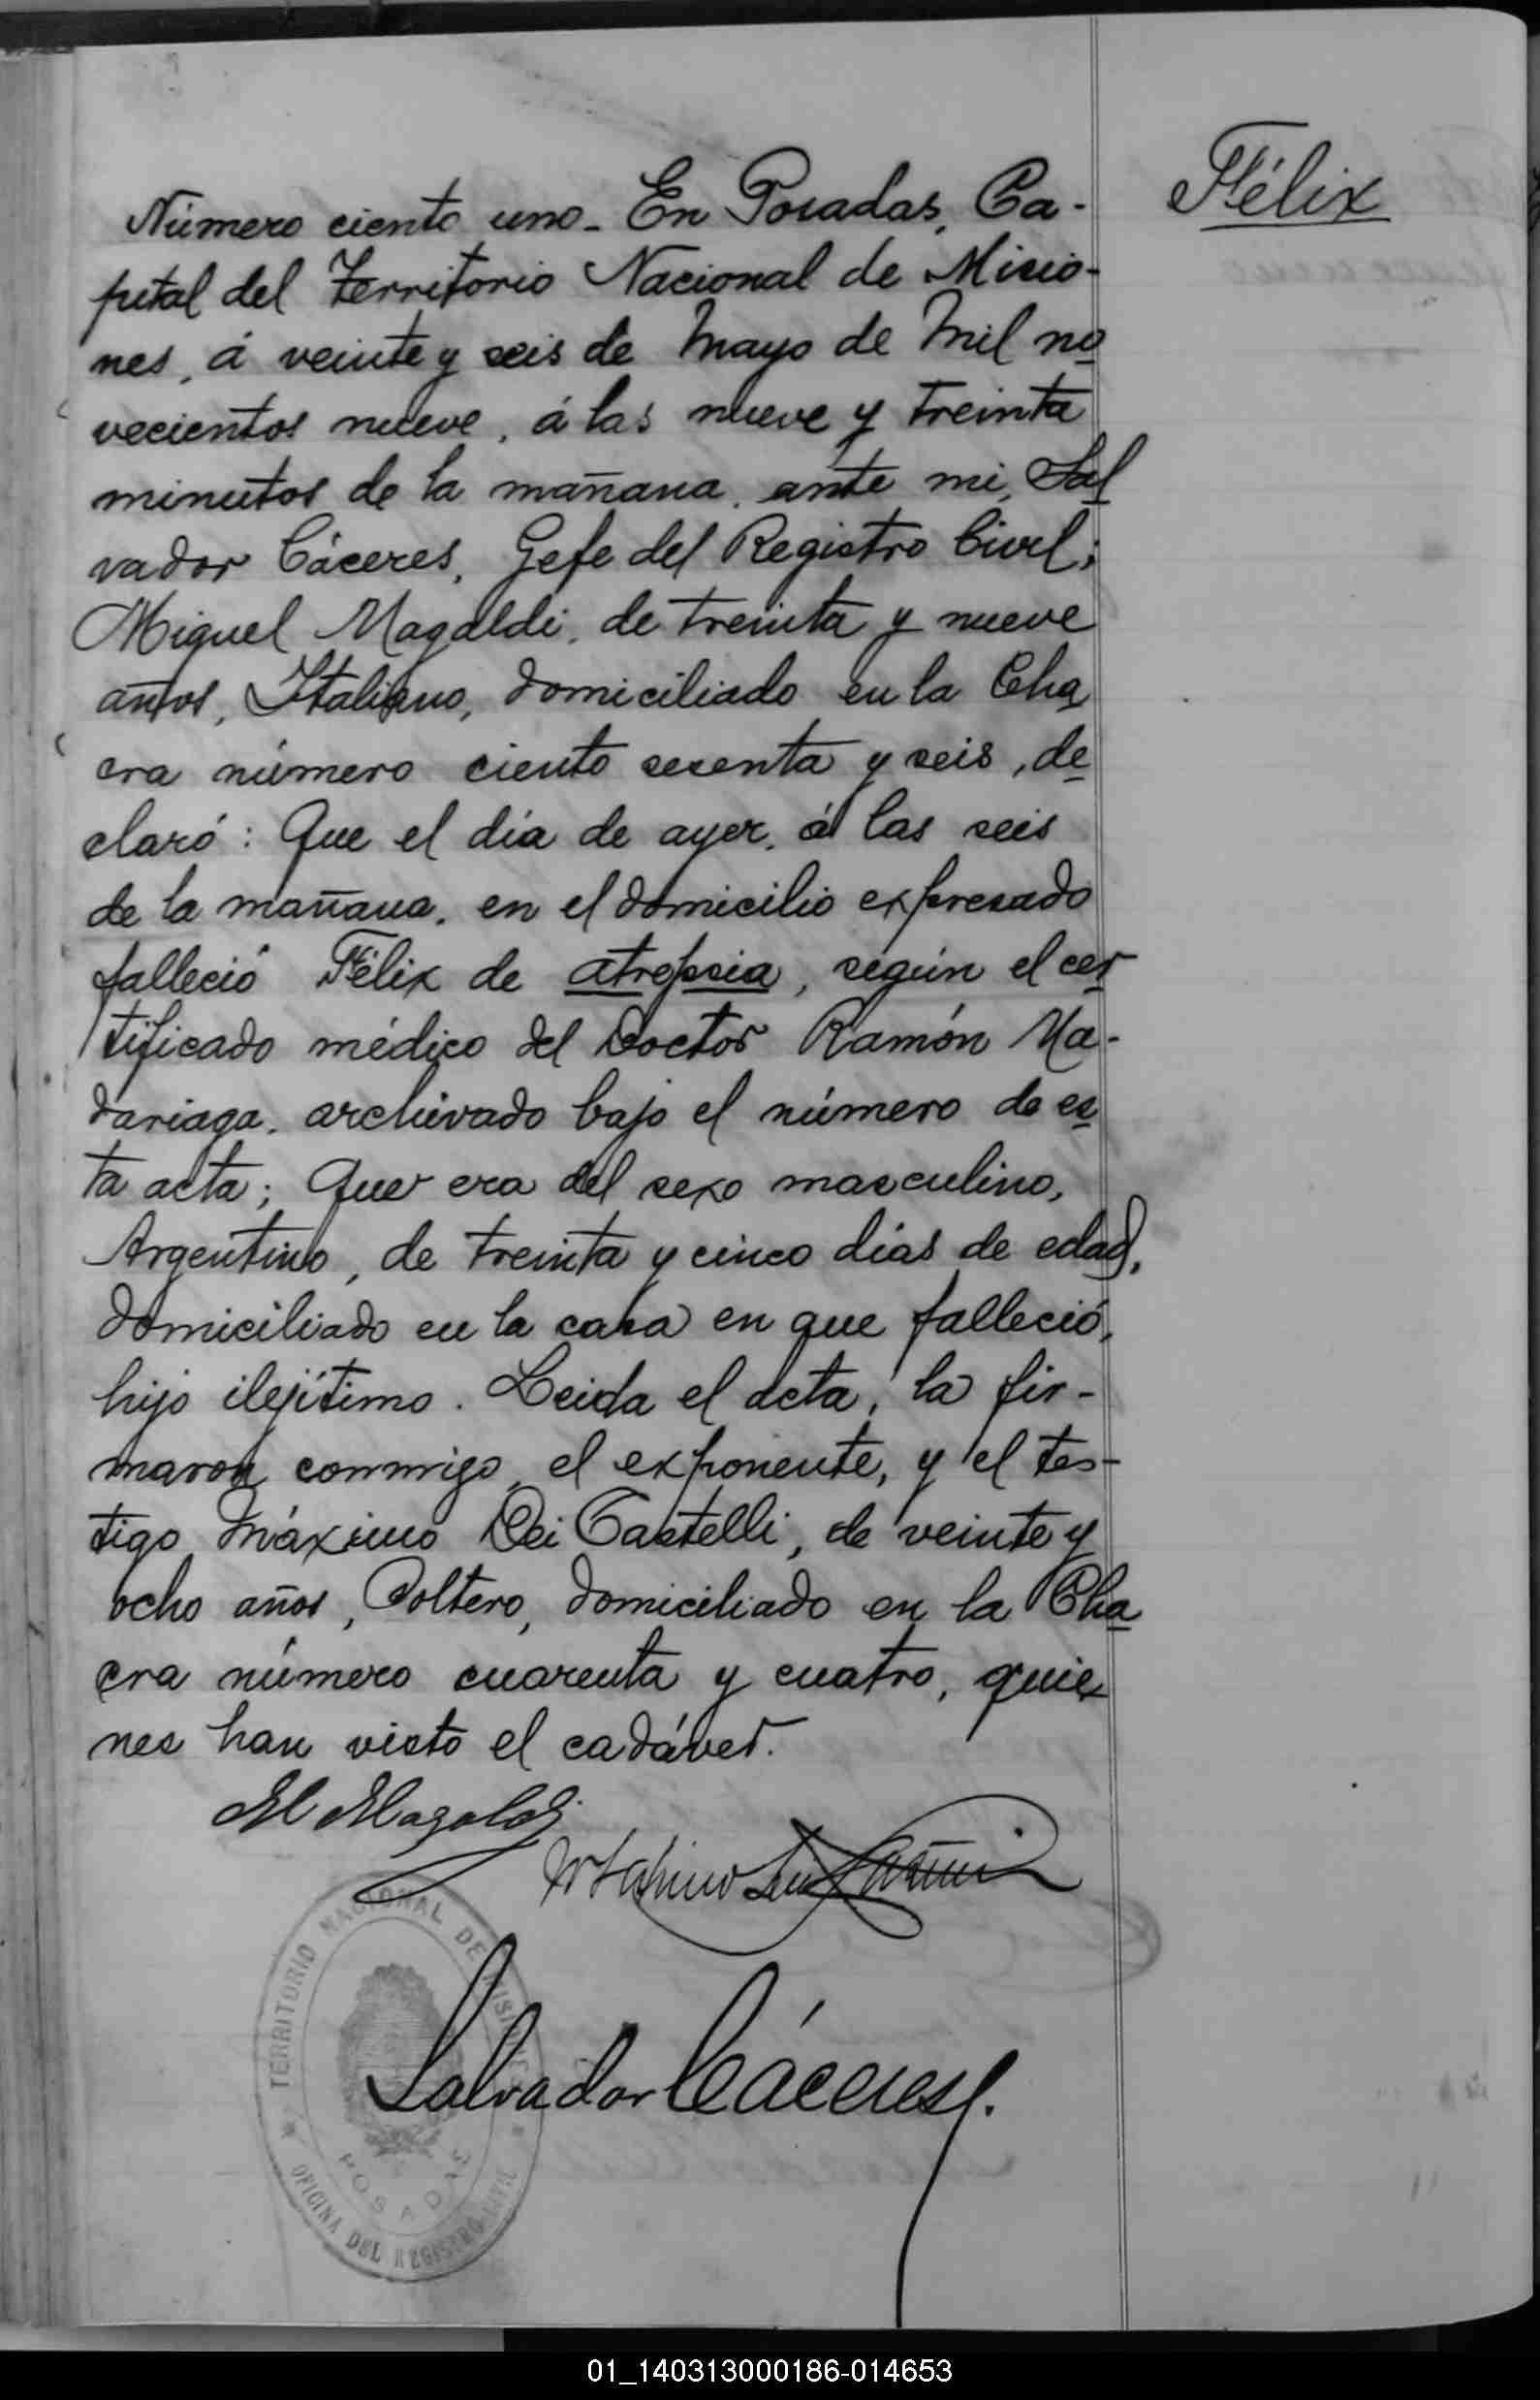 Félix
Número ciento uno_ En Posadas, Ca-
pital del Territorio Nacional de Misio-
nes, á veinte y seis de Mayo de Mil no
vecientos nueve, á las nueve y treinta
minutos de la mañana, ante mi, Sal
vador Cáceres, Gefe del Registro Civil;
Miguel Magaldi, de treinta y nueve
años, Italiano, domiciliado en la Cha
cra número ciento sesenta y seis, de
claró: Que el día de ayer, á las seis
de la mañana, en el domicilio expresado
falleció Félix de atrepsia, según el cer
tificado médico del Doctor Ramón Ma-
dariaga, archivado bajo el número de es
ta acta; Que era del sexo masculino,
Argentino, de treinta y cinco días de edad,
domiciliado en la casa en que falleció,
hijo ilejítimo. Leida el acta, la fir-
maron conmigo, el exponente, y el tes-
tigo Máximo Dei Castelli, de veinte y
ocho años, Soltero, domiciliado en la Cha
cra número cuarenta y cuatro, quie
nes han visto el cadáver.
M Magaldi
Salvador Cáceres
TERRITORIO NACIONAL DE MISIONES
POSADAS
OFICINA DEL REGISTRO CIVIL
01_140313000186-014653